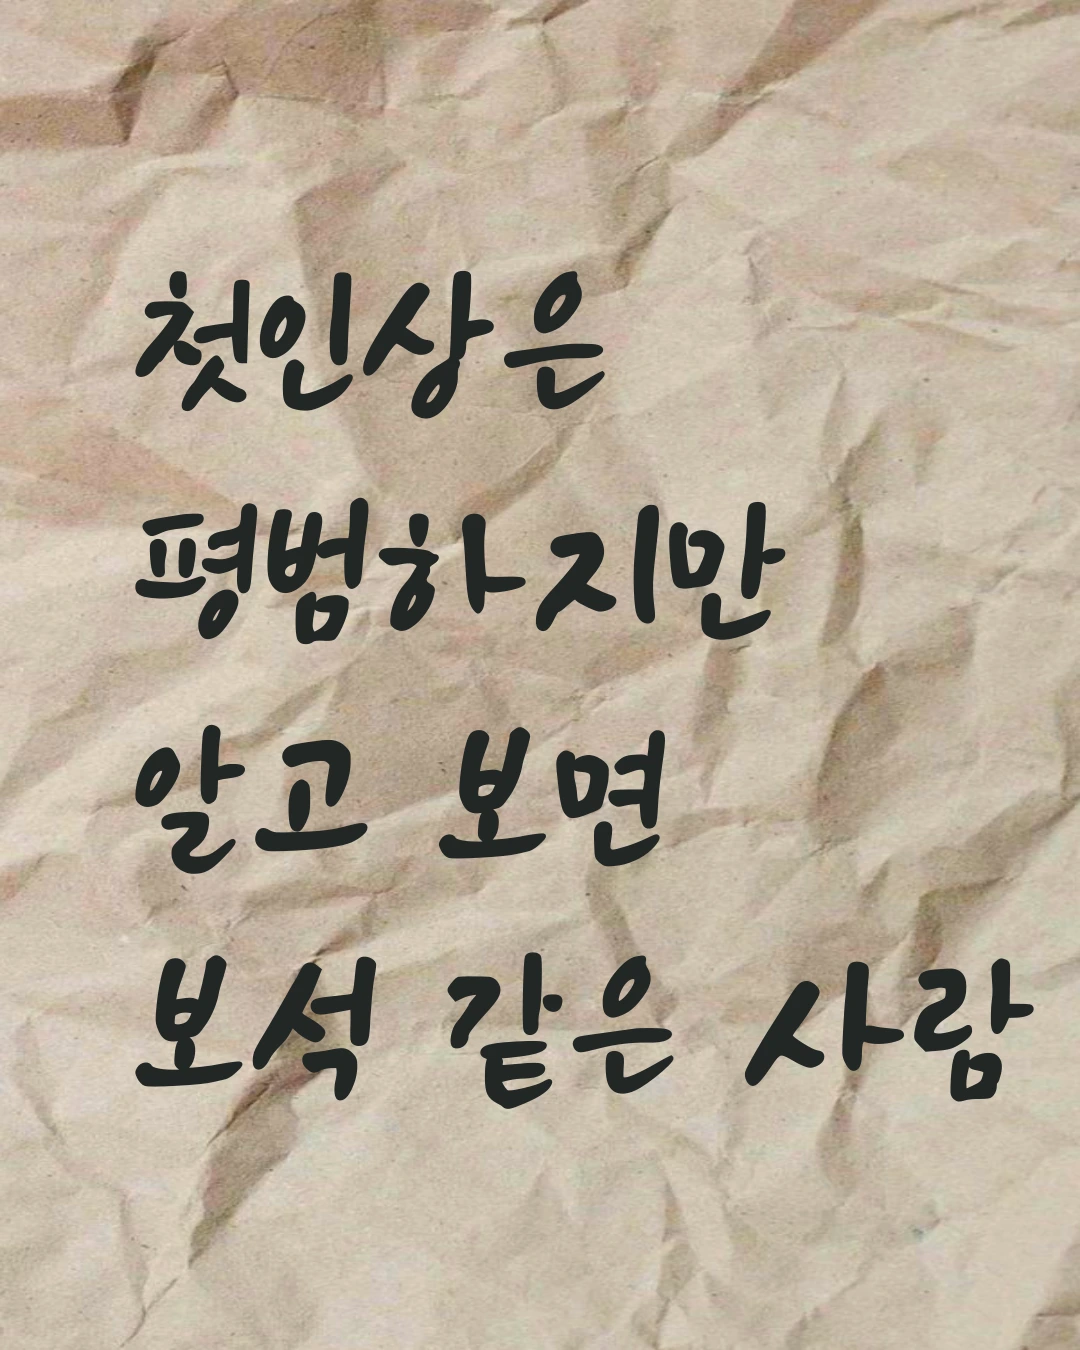 첫인상은
평범하지만
알고 보면
보석 같은 사람